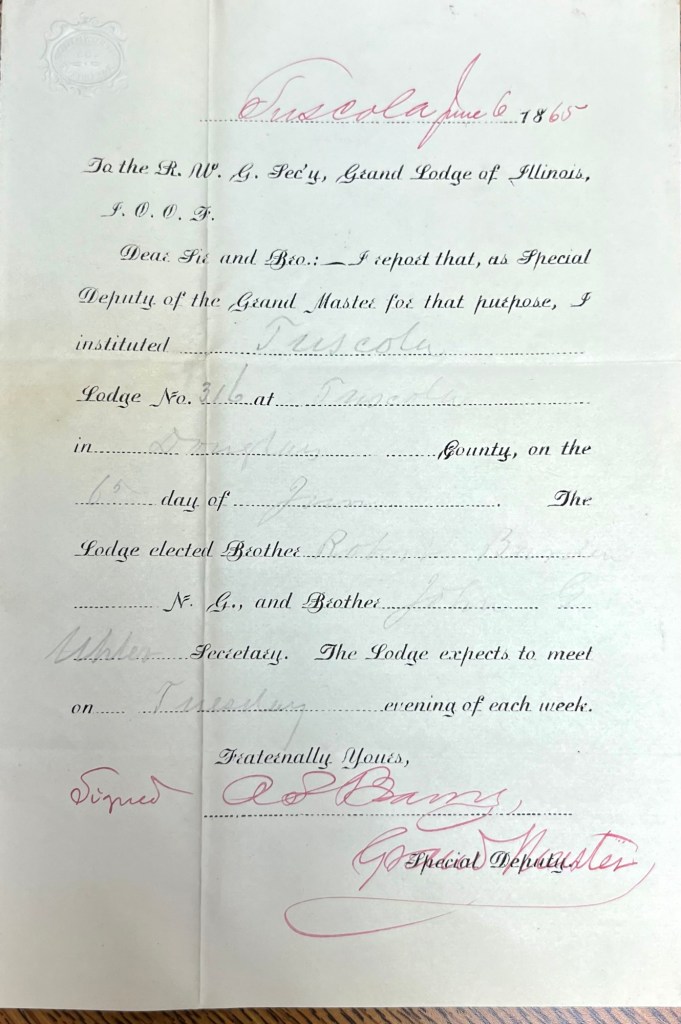 Tuscola June 6 1865
To the R. W. G. Sec'y, Grand Lodge of Illinois,
I. O. O. F.
Dear Sir and Bro.: — I report that, as Special
Deputy of the Grand Master for that purpose, I
instituted Tuscola
Lodge No. 316 at Tuscola
in Douglas County, on the
day of The
Lodge elected Brother
N. G., and Brother John G
Secretary. The Lodge expects to meet
on Tuesday evening of each week.
Fraternally Yours,
Signed A S Barry,
Special Deputy. Grand Master,